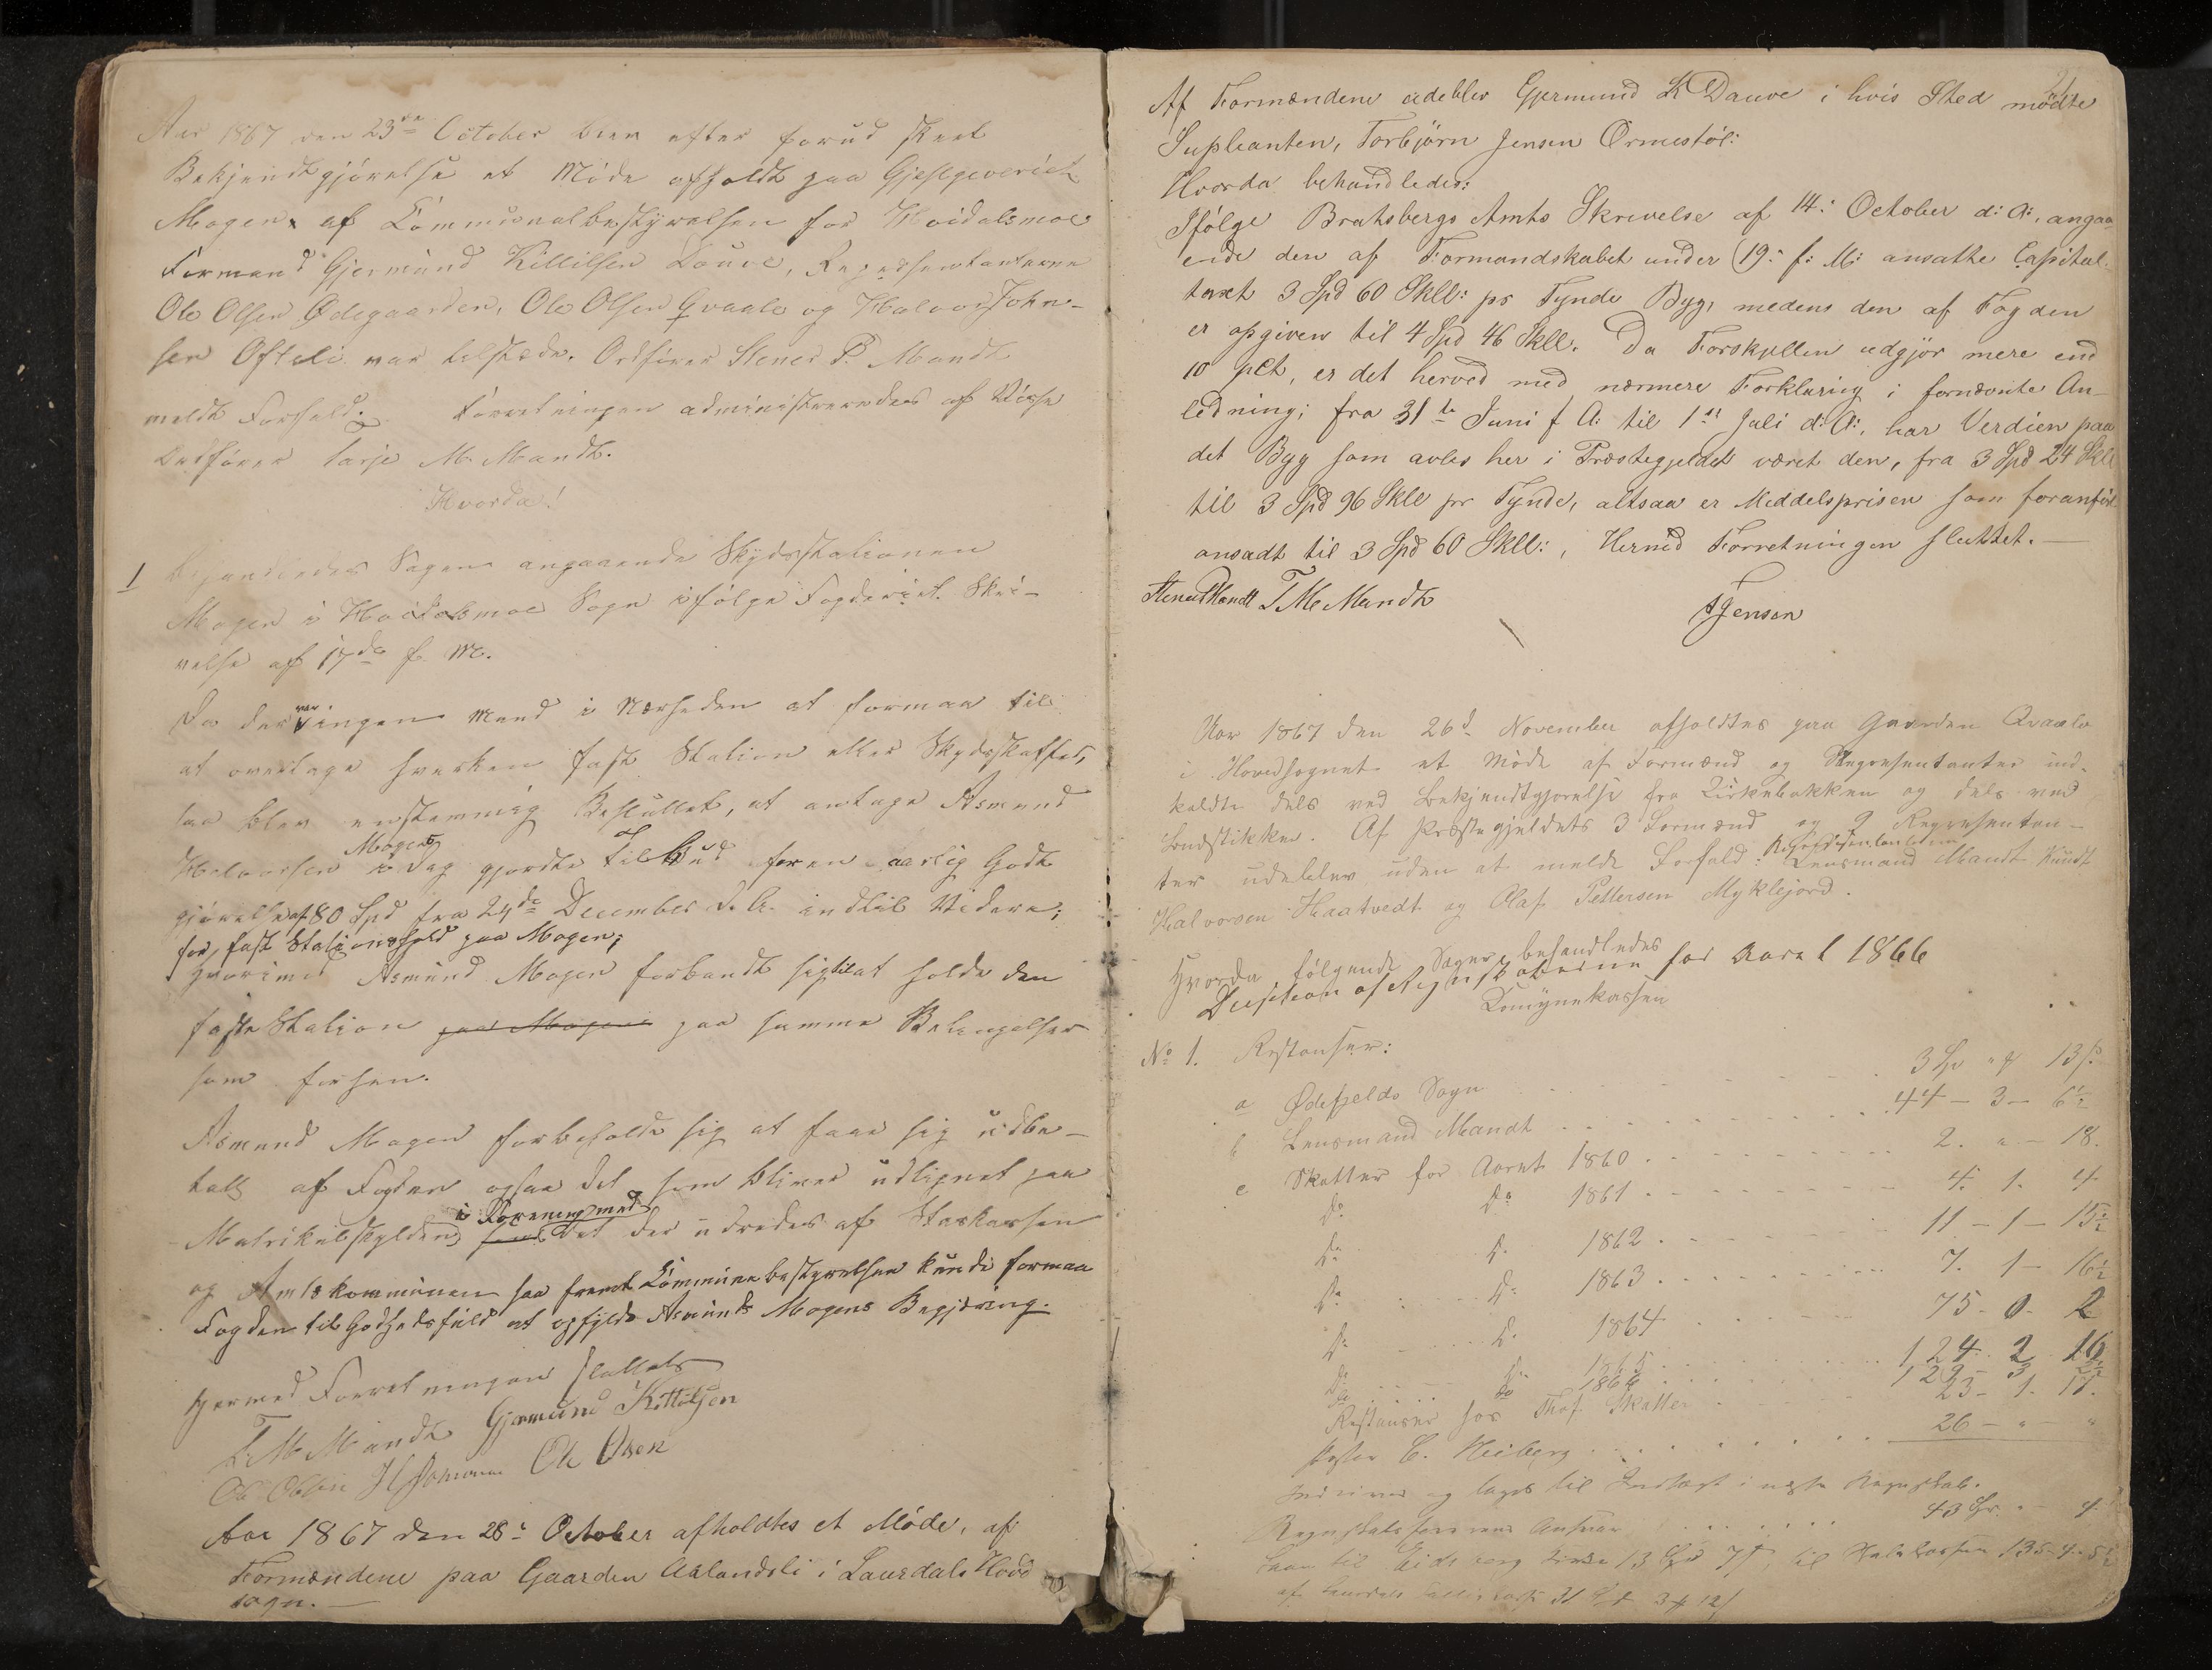 Aar 1867 den 23de October blev efter forud skeet
Bekjendtgjörelse et Möde afholdt paa Gjæstgiveriet
Mogen af Communalbestyrelsen for Høidalsmoe
Formand Gjermund Kittilsen Dauve, Repræsentanterne
Ole Olsen Ødegaarden, Ole Olsen Qvaale og Halvor John-
sen Ofteli var tilstæde. Ordförer Stener P. Mandt
meldt Forfald. Forretningen administreredes af Vise
Ordförer Tarje M. Mandt.
Hvorda!
1 behandledes Sagen angaaende Skydsstationen
Mogen i Høidalsmoe Sogn ifölge Fogderiet Skri-
velse af 17de f. M.
Da der var ingen Mand i Nærheden at formaa til
at overtage hverken fast Station eller Skydsskaffer,
saa blev enstemmig Besluttet, at antage Asmund
Halvorsen Mogens i Dag gjordte Tilbud for en aarlig Godt
gjörelse af 80 Spd fra 24de December d. A. indtil Videre;
for fast Stationshold paa Mogen;
hvorimod Asmund Mogen forbandt sig til at holde den
faste Station paa Mogen paa samme Betingelser
som forhen.
Asmund Mogen forbeholdt sig at faae sig udbe-
talt af Fogden ogsaa det som bliver udlignet paa
Matrikulskylden i Forening med det der udredes af Staskassen
og Amtskommunen saa fremt Communebestyrelsen kunde formaa
Fogden til Godhedsfuld at opfylde Asmund Mogens Begjæring.
Hermed Forretningen sluttet
T. M Mandt Gjermund Kittilsen
Ole Olsen H Johnsen Ole Olsen
Aar 1867 den 28: October afholdtes et Möde, af
Formændene paa Gaarden Aslandsli i Laurdals Hoved
sogn. —
21
Af Formændene udeblev Gjermund K Dauve i hvis Sted mödte
Supleanten, Torbjörn Jensen Ormestöl:
Hvorda behandledes:
Ifölge Bratsbergs Amts Skrivelse af 14: October d: A:, angaa-
ende den af Formandskabet under 19: f: M: ansatte Capital-
taxt 3 Spd 60 Skll: pr Tynde Byg, medens den af Fogden
er opgiven til 4 Spd 46 Skll. Da Forskjellen udgjör mere end
10 pCt, er det herved med nærmere Forklaring i fornævnte An-
ledning; fra 31te Juni f A: til 1ste Juli d: A:, har Verdien paa
det Byg som avles her i Præstegjeldet været den, fra 3 Spd 24 Skll
til 3 Spd 96 Skll pr Tynde, altsaa er Middelsprisen som foranför
ansadt til 3 Spd 60 Skll:, Hermed Forretningen sluttet. —
Stener P Mandt T M Mandt
T Jensen
Aar 1867 den 26d November afholdtes paa Gaarden Qvaale
i Hovedsognet et Möde af Formænd og Repræsentanter ind-
kaldte dels ved Bekjendtgjörelse fra Kirkebakken og dels ved
Budstikken. Af Præstegjeldets 3 Formænd og 9 Repræsentan-
ter udeblev uden at melde Forfald: Repræsentanterne Lensmand Mandt Knudt
Halvorsen Haatvedt og Olaf Pettersen Myklejord.
Hvorda fölgende Sager behandledes
Decision af Regnskaberne for Aaret 1866
No 1. Restanser:
a Ødefjelds Sogn . . . 3 Sp " 13
b Lensmand Mandt . . . 44 – 3 – 6½
c Skatter for Aaret 1860 . . . 2. " – 18.
Do Do 1861 . . . 4. 1. 4
Do Do 1862 . . . 11 – 1 – 15½
Do Do 1863 . . . 7. 1 – 16½
Do Do 1864 . . . 75 – 0 – 2
Do Do 1865 . . . 124. 2 16
Do Do 1866 . . . 129 – 3
Restanser hos Skatter . . . 23 – 1. 17.
C. Heiberg . . . 26 – " – "
og tages til Indtægt i neste Regnskab.
Regnskabsförerens Ansvar . . . 43 Sp. " – 4